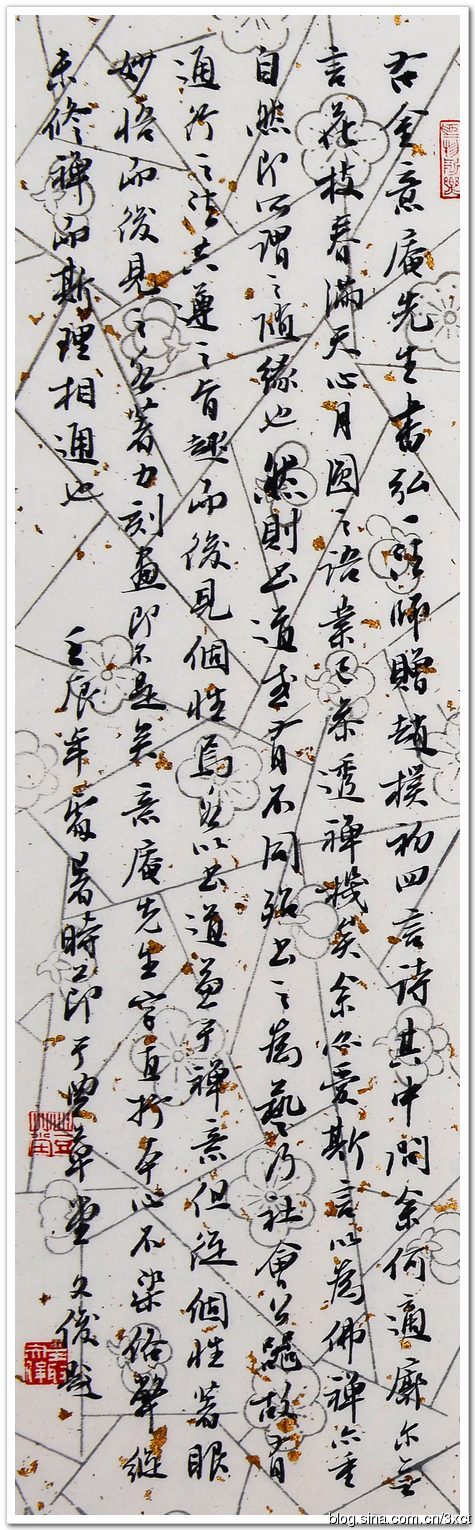 右金意庵先生书弘一法師贈趙樸初四言詩其中問余何適廓尔亡
言花枝春滿天心月圓之語業已參透禪機矣余愛斯言以為佛禪亦重
自然即所謂之随緣也然則书道或有不同殆书之為藝乃社會公器故有
通行之法共遵之旨趣而後見個性焉所以书道禪意但從個性著眼
妙悟而後見之若著力刻畫即不是矣意庵先生字直抒本心不染俗塵縱
未修禪而斯理相通也 壬辰年處暑時節于豐草堂文俊題
blog.sina.com.cn/3xct